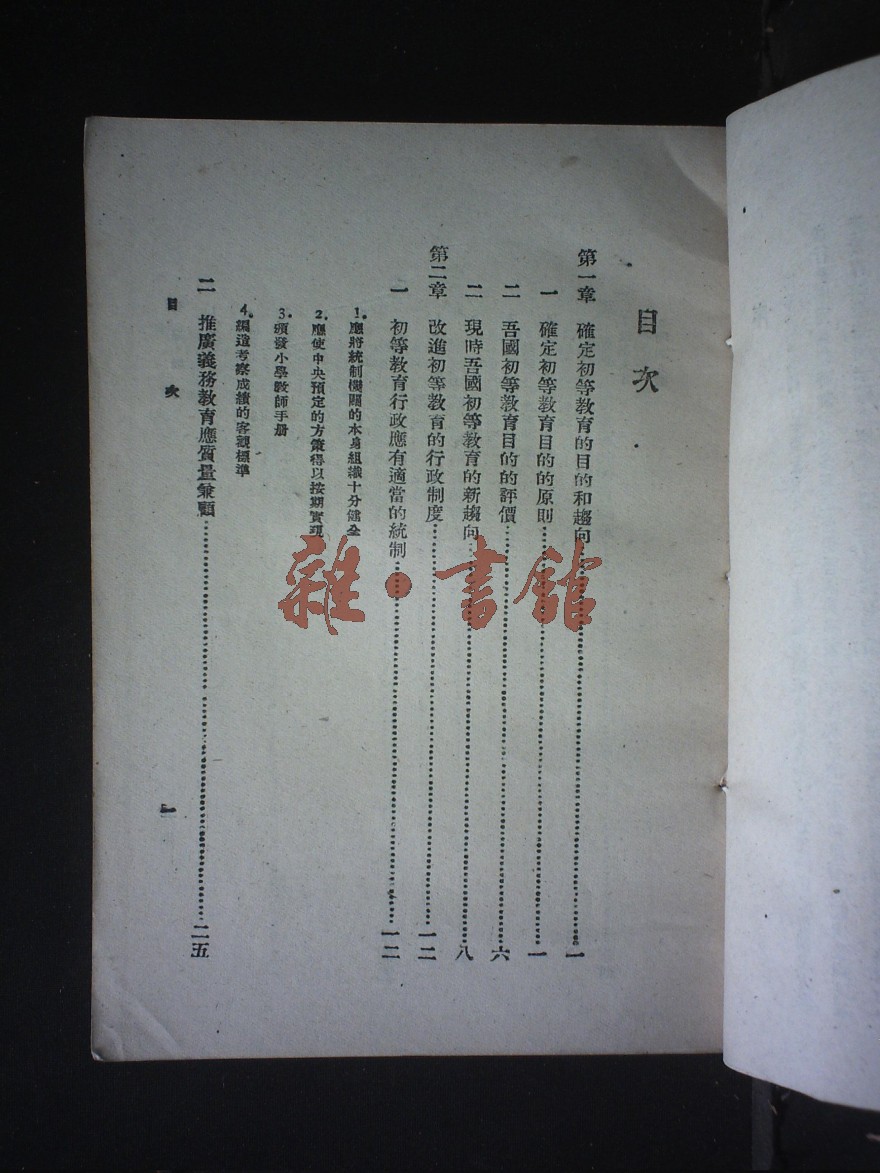 目次
第一章 確定初等教育的目的和趨向……一
一 確定初等教育目的的原則……一
二 吾國初等教育目的的評價……六
二 現時吾國初等教育的新趨向……八
第二章 改進初等教育的行政制度……一二
一 初等教育行政應有適當的統制……一二
1. 應將統制機關的本身組織十分健全
2. 應使中央預定的方策得以按期實現
3. 頒發小學教師手册
4. 編造考察成績的客觀標準
二 推廣義務教育應質量兼顧……二五
目次
一
雜·書館